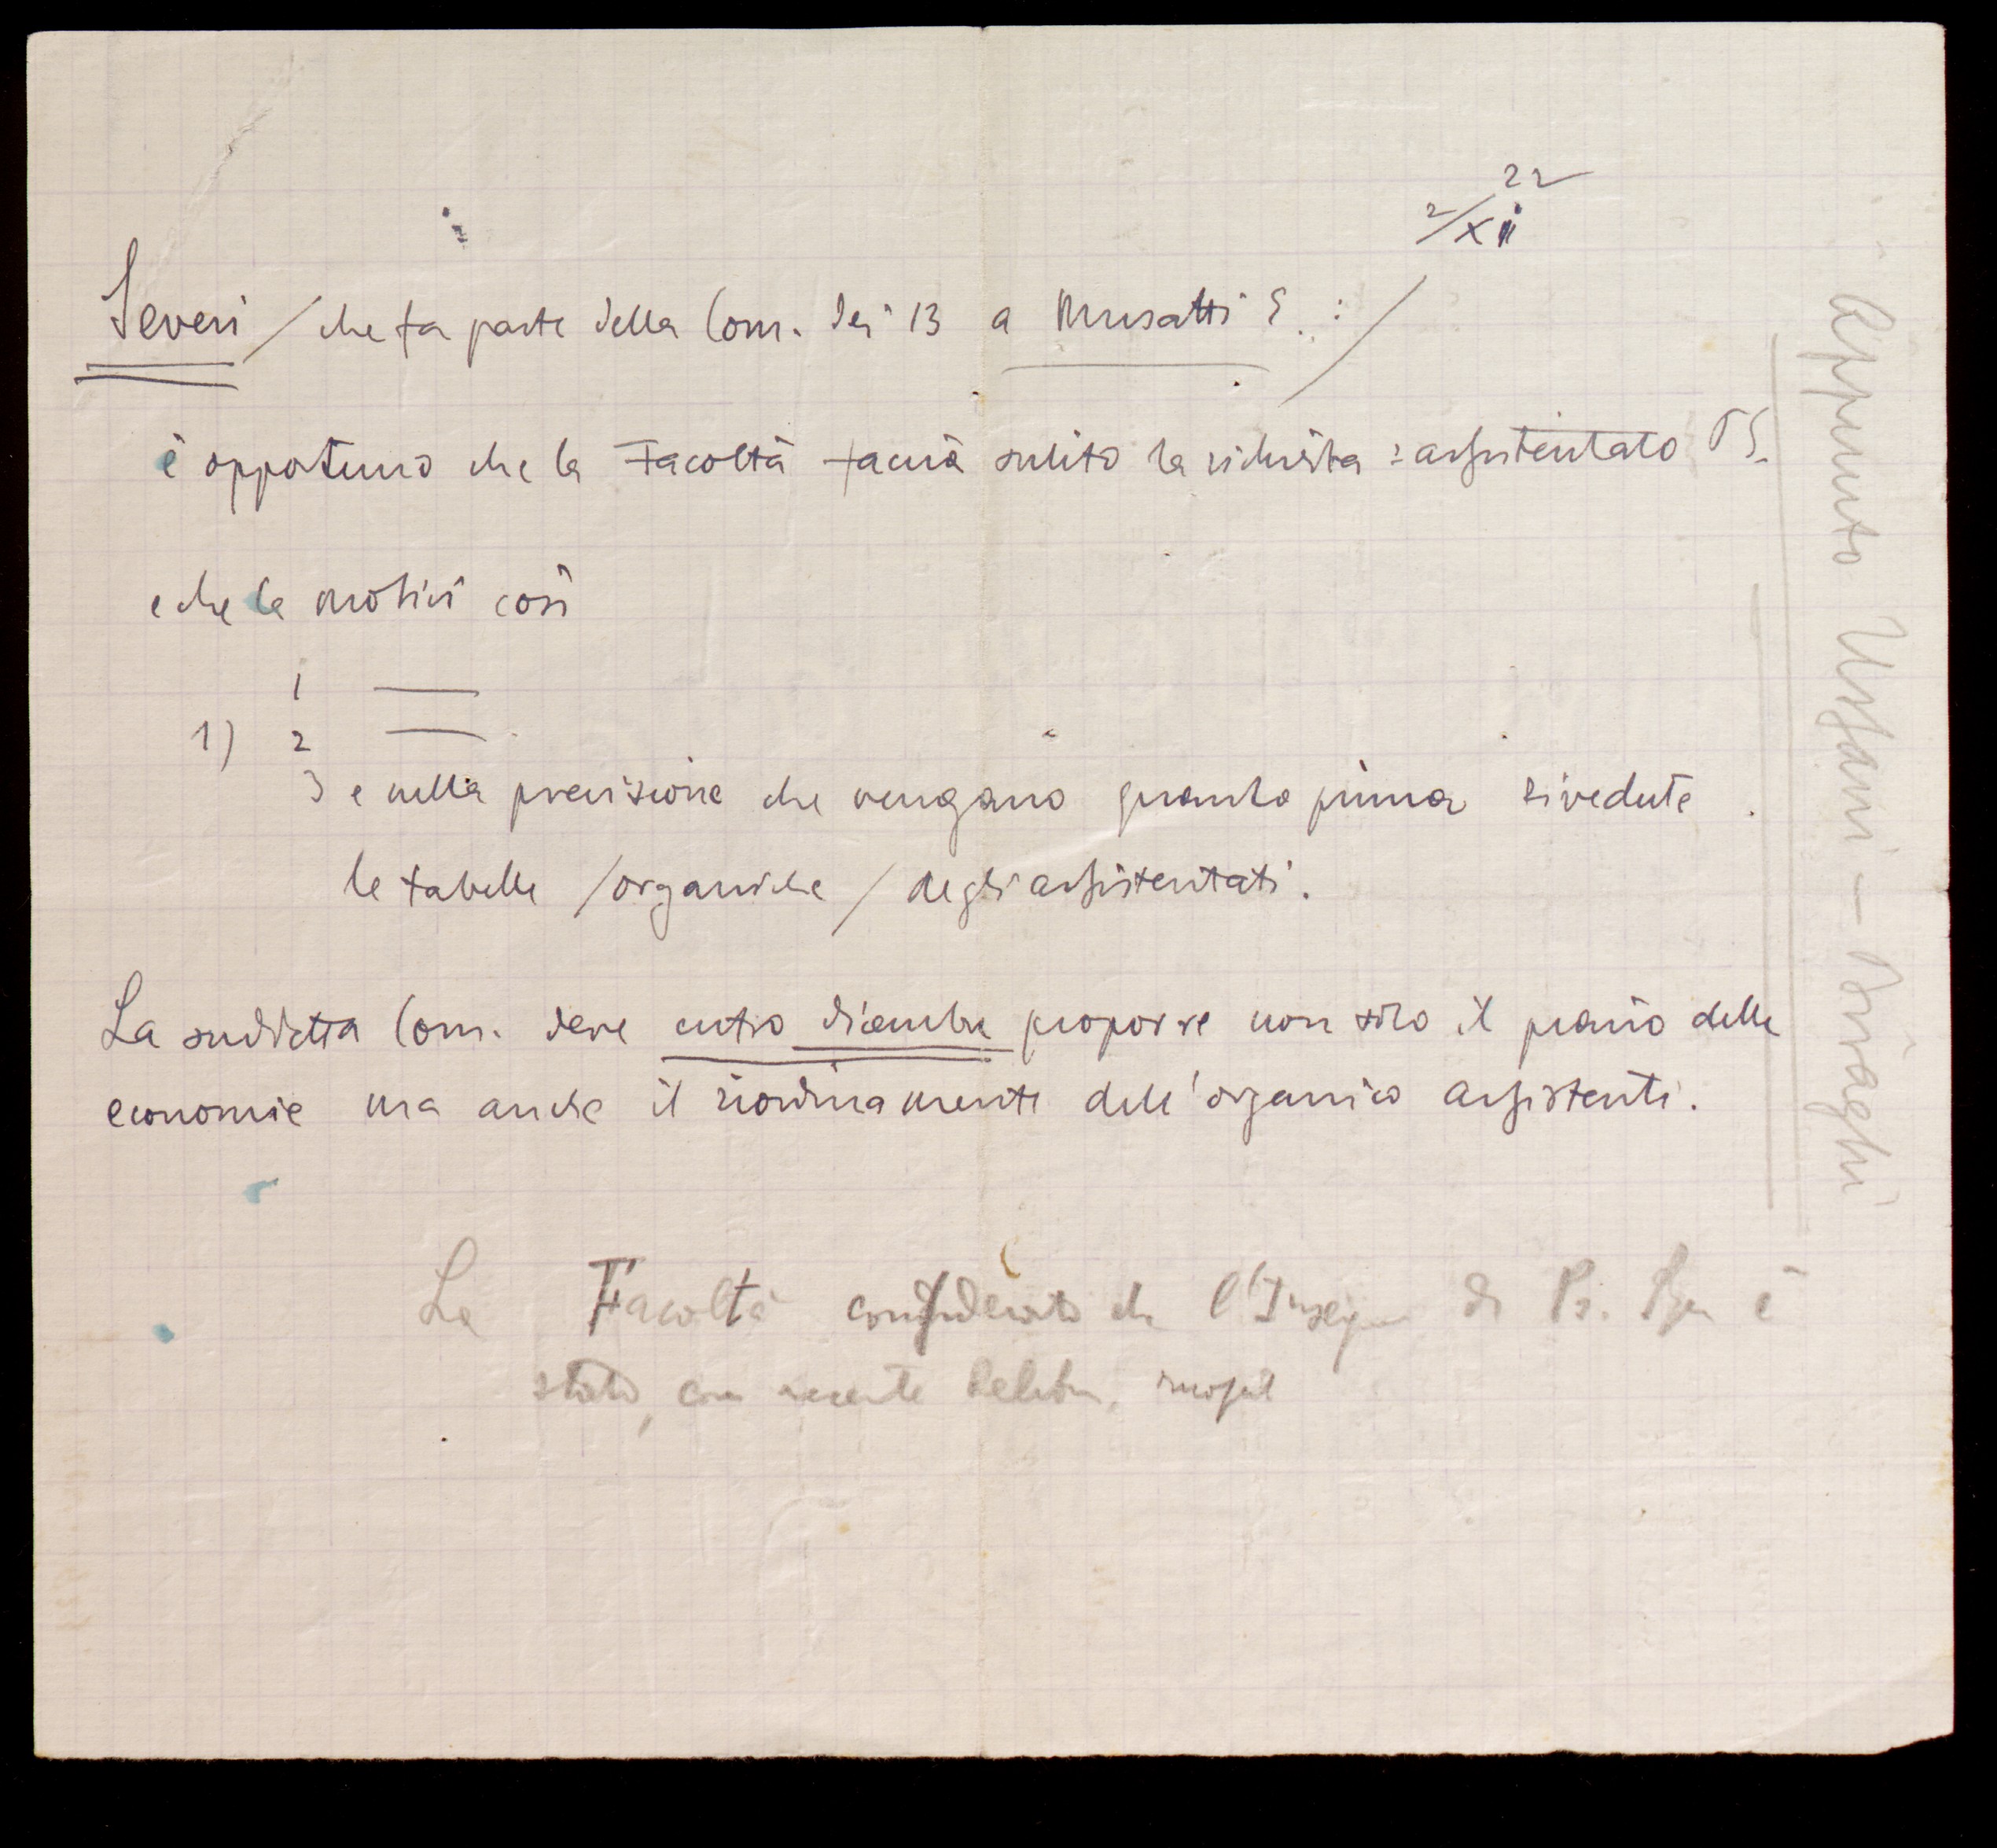 22
2/XII
Severi / che fa parte della Com. dei 13 a Musatti C. : /
è opportuno che la Facoltà faccia subito la richiesta : assistentato PS.
e che la motivi così
1 —
1) 2 —
3 e nella previsione che vengano quanto prima rivedute
le tabelle / organiche / degli assistentati.
La suddetta Com. deve entro dicembre proporre non solo il piano delle
economie ma anche il riordinamento dell'organico assistenti.
La Facoltà considerato che l'Insegn di Ps. è
stato, con recente
Appunto Ussani - Biraghi